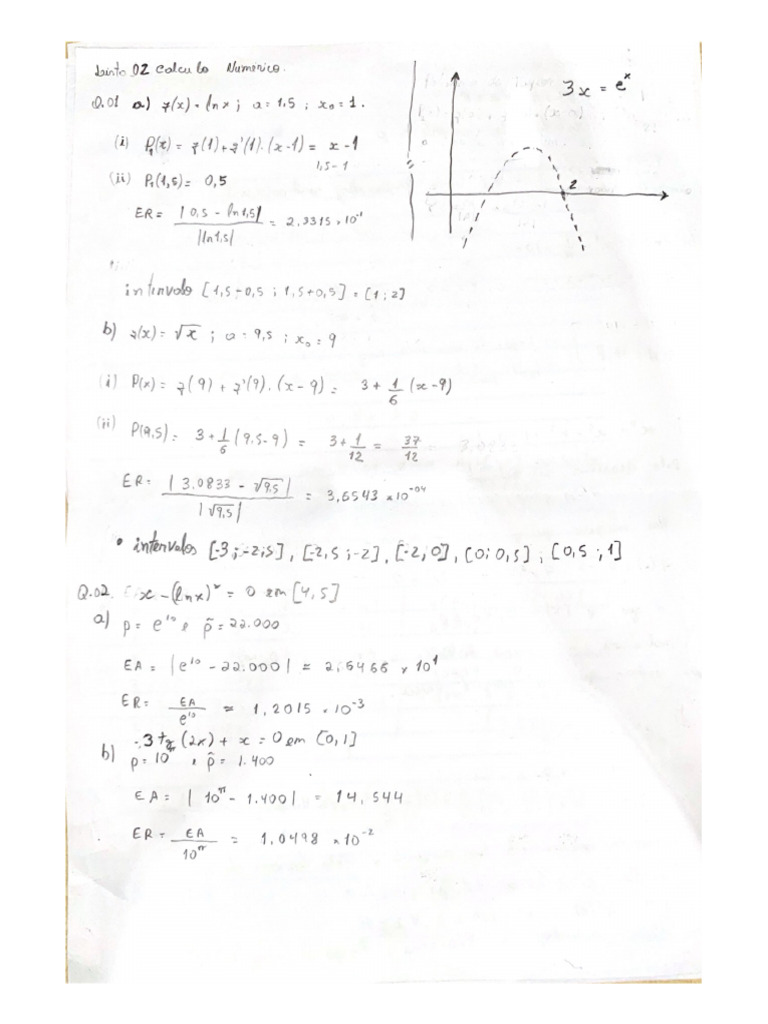 Lista 02 Calculo Numérico.
3x = e^x
Q.01 a) f(x) = ln x ; a = 1,5 ; x₀ = 1.
(i) P₁(x) = f(1) + f'(1).(x-1) = x - 1
1,5 - 1
(ii) P₁(1,5) = 0,5
2
ER = |0,5 - ln1,5| / |ln1,5| = 2,3315 × 10^-1
intervalo [1,5-0,5 ; 1,5+0,5] = [1 ; 2]
b) f(x) = √x ; a = 9,5 ; x₀ = 9
(i) P(x) = f(9) + f'(9).(x-9) = 3 + 1/6 (x-9)
(ii) P(9,5) = 3 + 1/6 (9.5-9) = 3 + 1/12 = 37/12
ER = |3.0833 - √9,5| / |√9,5| = 3,6543 × 10^-04
• intervalos [-3 ; -2,5] , [-2,5 ; -2] , [-2, 0] , [0; 0,5] , [0,5 ; 1]
Q.02. x - (ln x)^x = 0 em [4,5]
a) p = e^10 e p̃ = 22.000
EA = |e^10 - 22.000| = 2,6466 × 10^1
ER = EA / e^10 = 1,2015 × 10^-3
3 tg (2x) + x = 0 em [0,1]
b) p = 10^π e p̂ = 1.400
EA = |10^π - 1.400| = 14,544
ER = EA / 10^π = 1,0498 × 10^-2